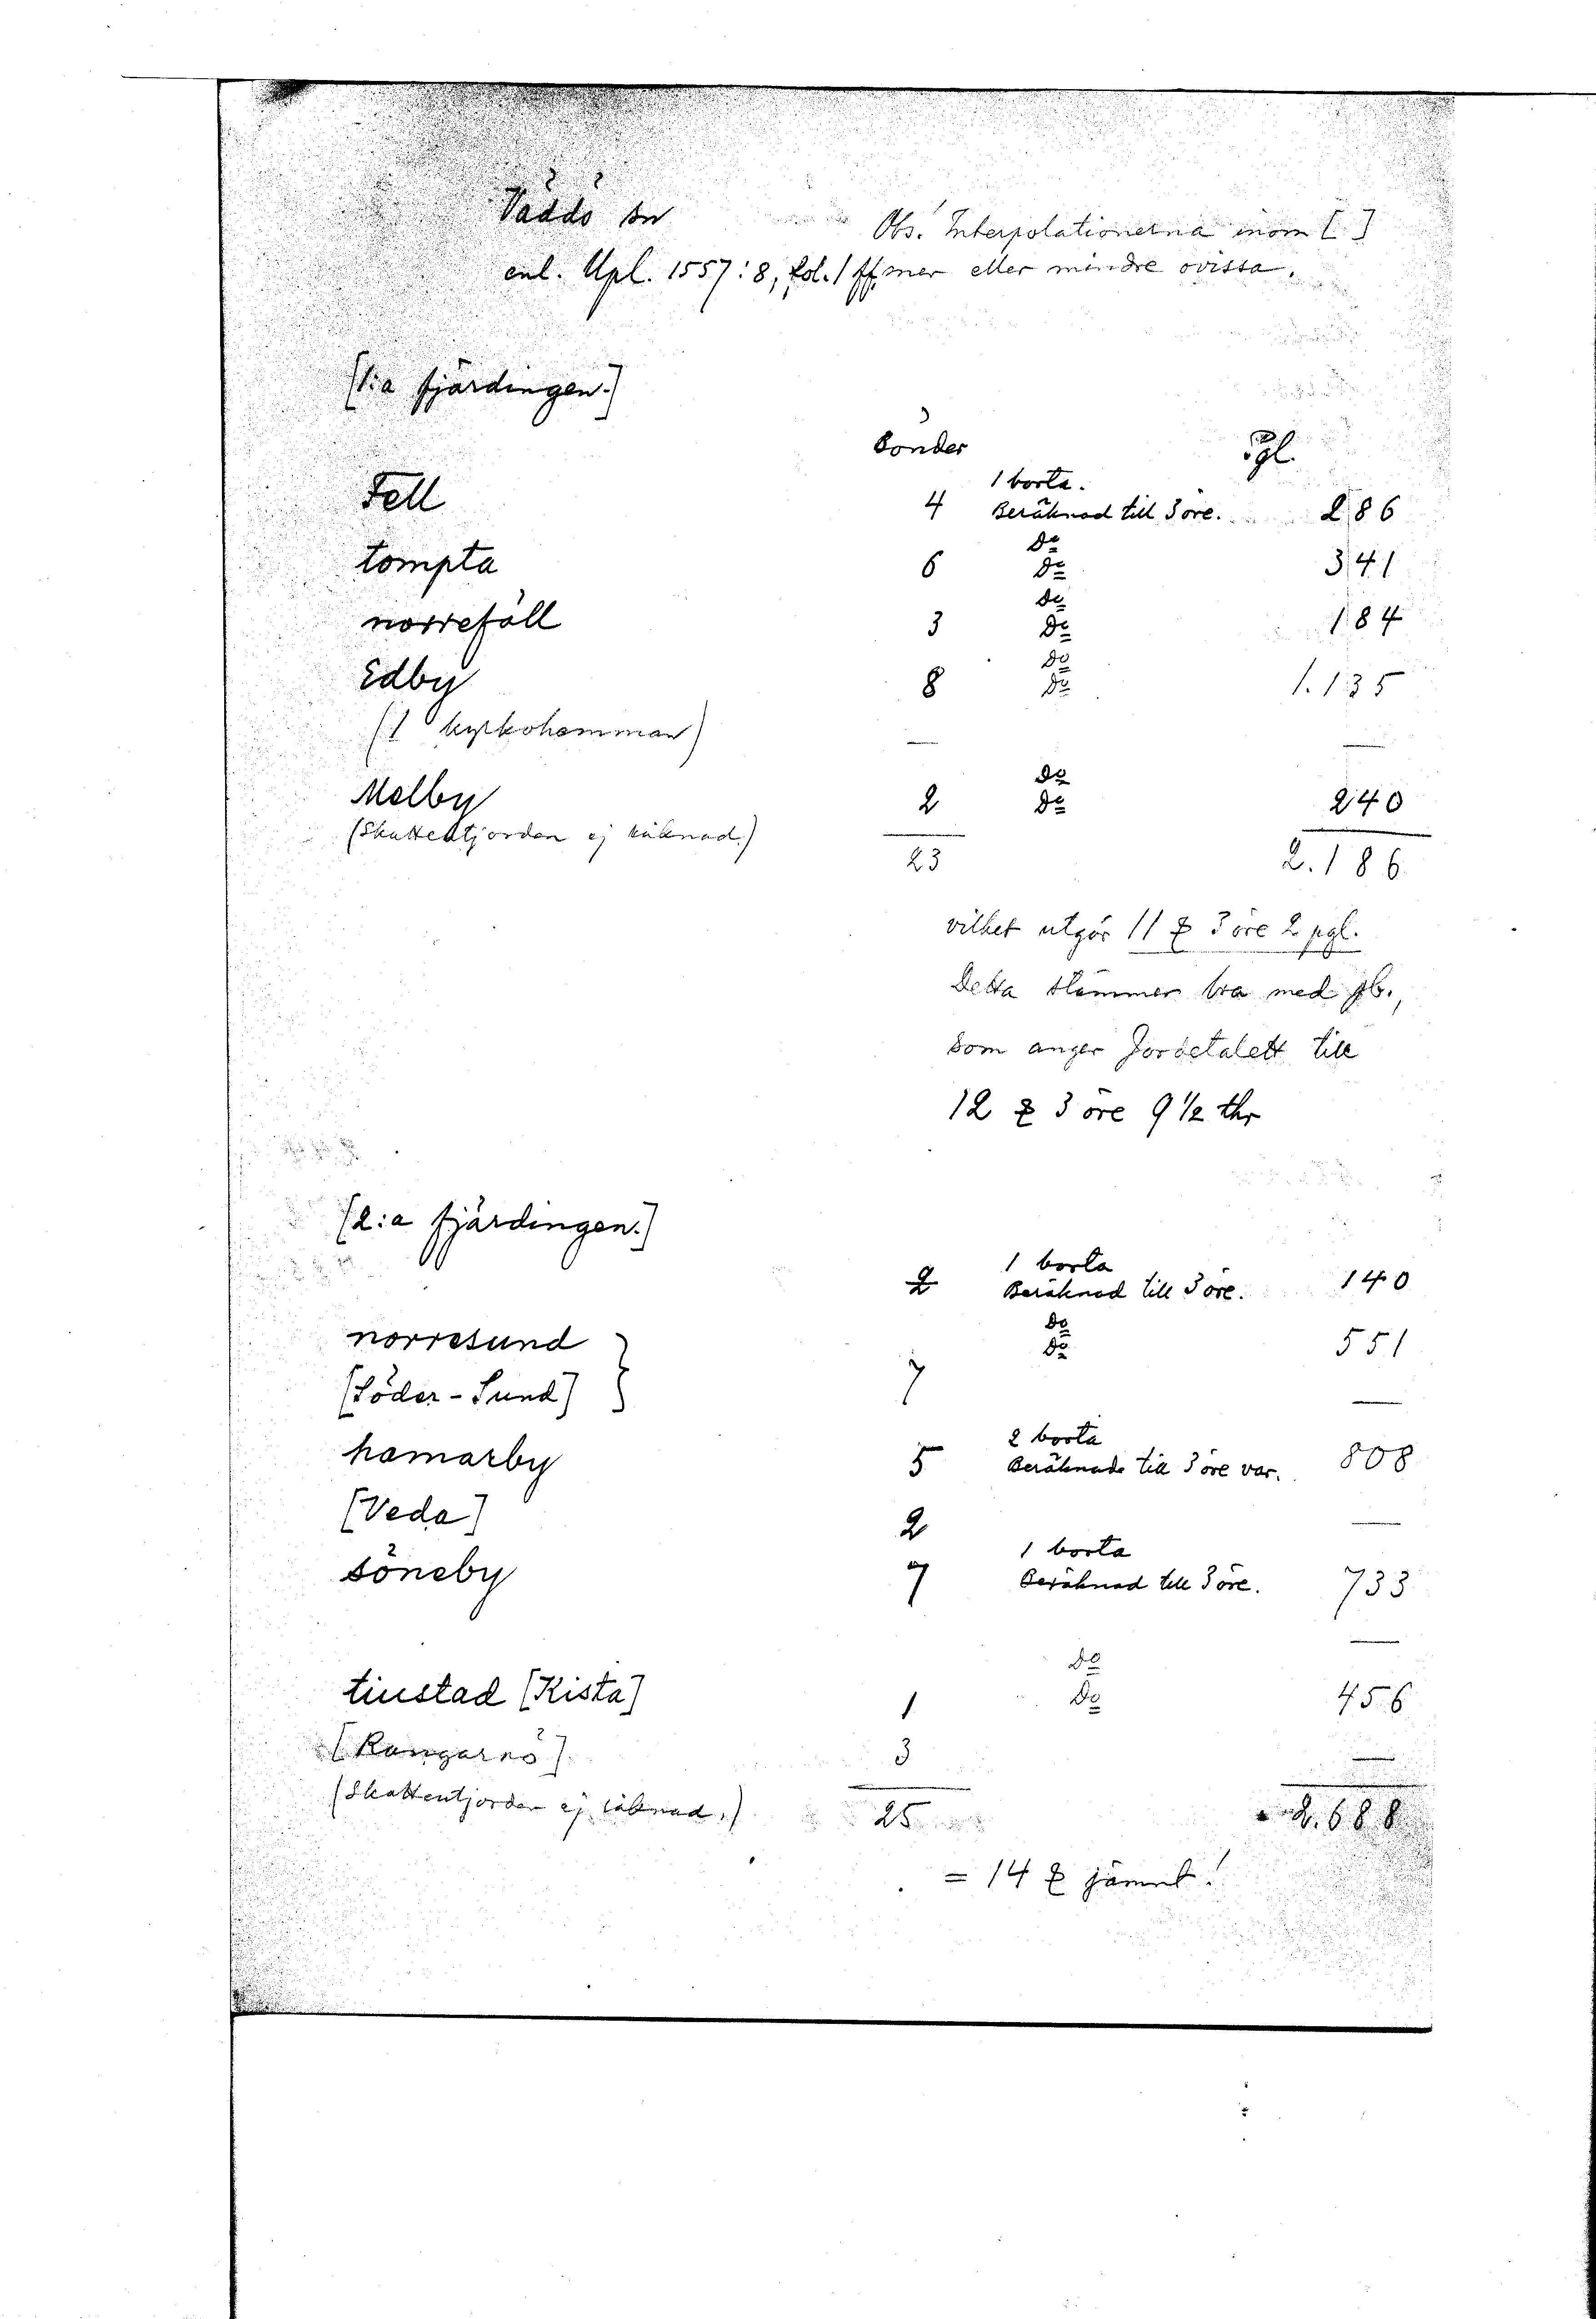 Väddö sn
Obs. Interpolationerna inom [ ]
enl. Upl. 1557:8, fol. 1 ff. mer eller mindre ovissa.
[1:a fjärdingen.]
Bönder Pgl.
1 borta.
Fell 4 Beräknad till 3 öre. 286
do
tompta 6 do 341
do
norrefäll 3 do 184
do
Edby 8 do 1.135
(1 kyrkohemman) — —
do
Melby 2 do 240
(Skattentjorden ej räknad.)
23 2.186
vilket utgör 11 £ 3 öre 2 pgl.
Detta stämmer bra med jb.,
som anger Jordetalett till
12 £ 3 öre 9 1/2 thr
[2:a fjärdingen.]
1 borta
2 Beräknad till 3 öre. 140
do
norresund do 551
[Söder-Sund] } 7 —
2 borta
hamarby 5 Beräknade till 3 öre var. 808
[Veda] 2 —
1 borta
söneby 7 Beräknad till 3 öre. 733
—
do
tiustad [Kista] 1 do 456
[Rangarnö] 3 —
(Skattentjorden ej räknad.)
25 2.688
= 14 £ jämnt!